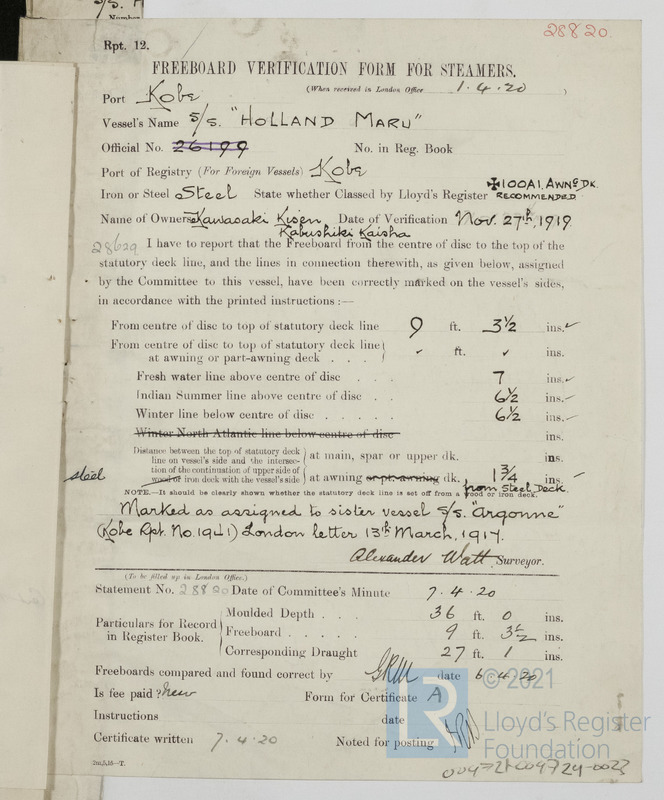 28820.
Rpt. 12.
FREEBOARD VERIFICATION FORM FOR STEAMERS.
(When received in London Office 1.4.20 )
Port Kobe
Vessel's Name S/S. "HOLLAND MARU"
Official No. 26199 No. in Reg. Book
Port of Registry (For Foreign Vessels) Kobe
Iron or Steel Steel State whether Classed by Lloyd's Register ✠100A1, AWNG DK. RECOMMENDED
Name of Owners Kawasaki Kisen Kabushiki Kaisha Date of Verification Nov. 27th, 1919
28629 I have to report that the Freeboard from the centre of disc to the top of the
statutory deck line, and the lines in connection therewith, as given below, assigned
by the Committee to this vessel, have been correctly marked on the vessel's sides,
in accordance with the printed instructions :—
From centre of disc to top of statutory deck line 9 ft. 3½ ins. ✓
From centre of disc to top of statutory deck line
at awning or part-awning deck . . . ✓ ft. ✓ ins.
Fresh water line above centre of disc . . . 7 ins. ✓
Indian Summer line above centre of disc . . 6½ ins. ✓
Winter line below centre of disc . . . . . 6½ ins. ✓
Winter North Atlantic line below centre of disc ins.
Distance between the top of statutory deck
line on vessel's side and the intersec- at main, spar or upper dk. ins.
tion of the continuation of upper side of
steel wood or iron deck with the vessel's side at awning or pt. awning dk. 1¾ ins. ✓
from Steel Deck.
NOTE.—It should be clearly shown whether the statutory deck line is set off from a wood or iron deck.
Marked as assigned to sister vessel S/S. "Argonne"
(Kobe Rpt. No. 1941) London letter 13th March, 1917.
Alexander Watt Surveyor.
(To be filled up in London Office.)
Statement No. 28820 Date of Committee's Minute 7.4.20
Particulars for Record in Register Book.
Moulded Depth . . . 36 ft. 0 ins.
Freeboard . . . . . 9 ft. 3½ ins.
Corresponding Draught 27 ft. 1 ins.
Freeboards compared and found correct by date 6.4.20
Is fee paid? Form for Certificate A
Instructions date
Certificate written 7.4.20 Noted for posting
2m,5,16—T.
© 2021
LR
Lloyd's Register
Foundation